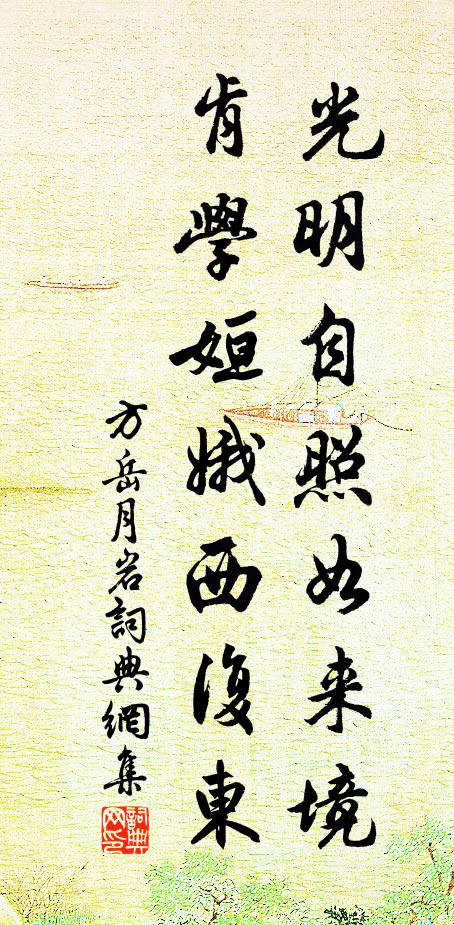 光明自照如来境
肯學姮娥西復東
方岳月岩詞典網集
詞典网印